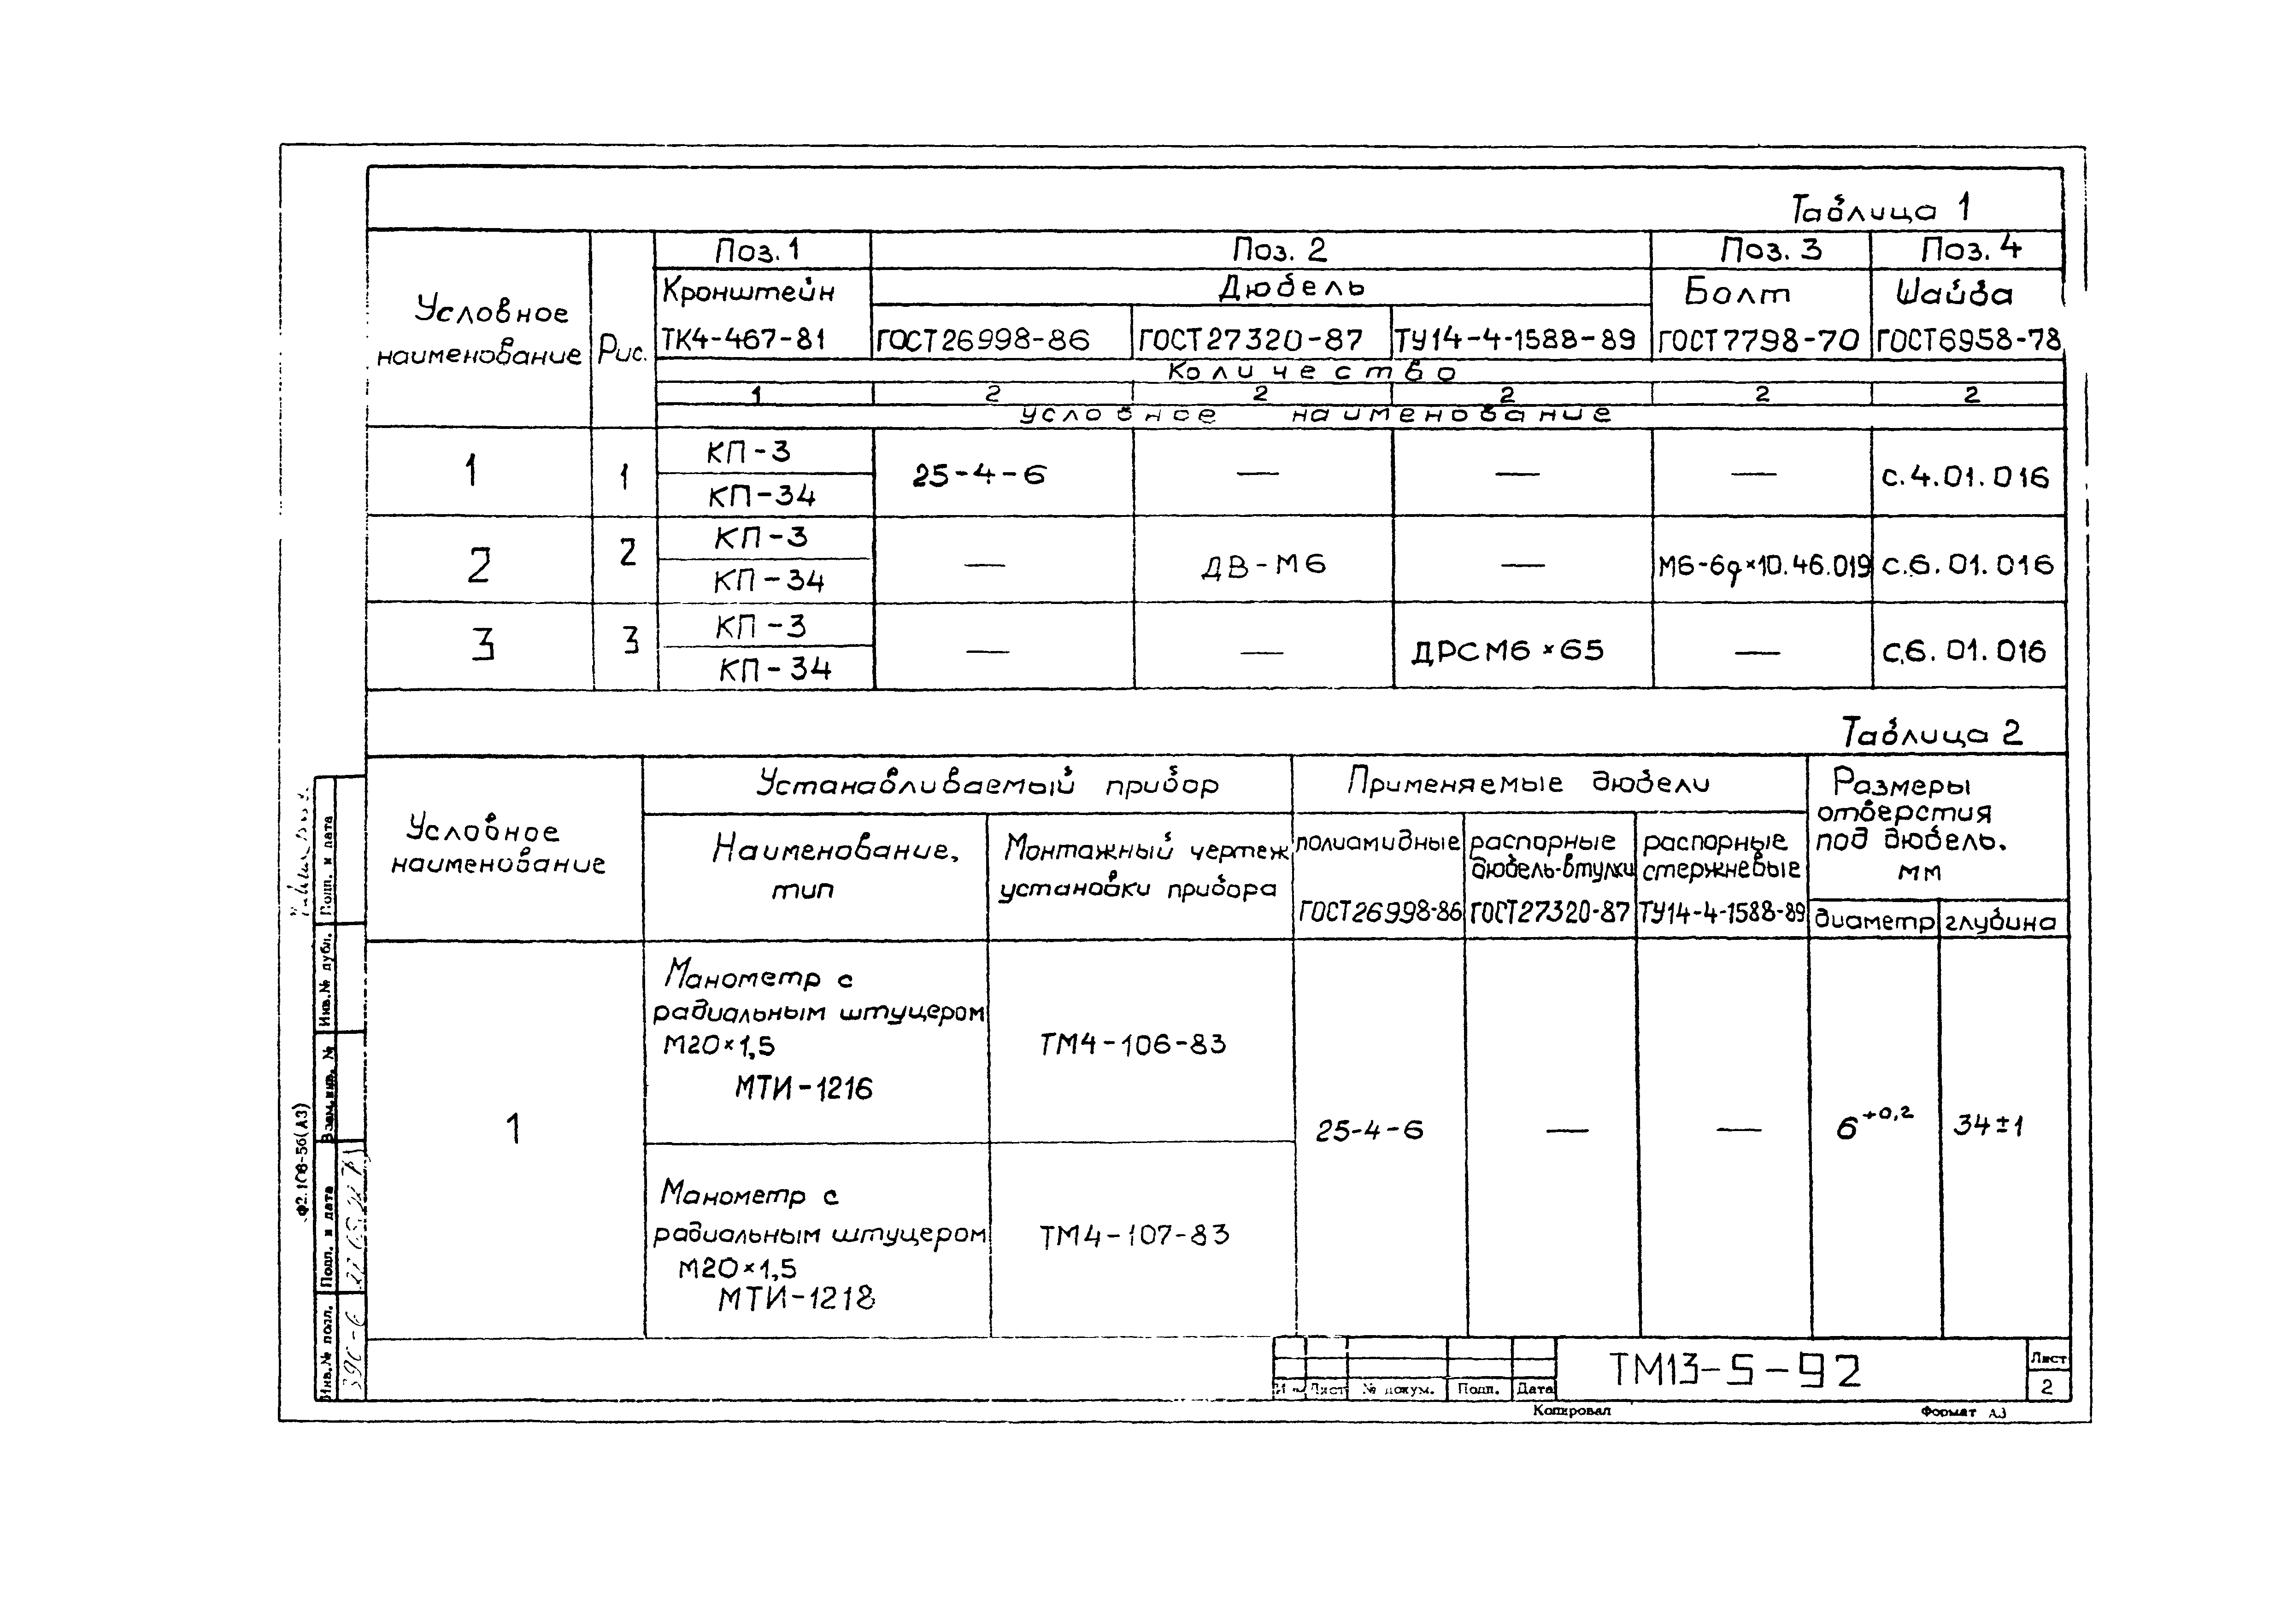 Таблица 1
Условное наименование
Рис.
Поз. 1
Поз. 2
Поз. 3
Поз. 4
Кронштейн
Дюбель
Болт
Шайба
ТК4-467-81
ГОСТ26998-86
ГОСТ27320-87
ТУ14-4-1588-89
ГОСТ7798-70
ГОСТ6958-78
Количество
1 2 2 2 2 2
условное наименование
1 1 КП-3 25-4-6 — — — с.4.01.016
КП-34
2 2 КП-3 — ДВ-М6 — М6-6g×10.46.019 с.6.01.016
КП-34
3 3 КП-3 — — ДРСМ6×65 — с.6.01.016
КП-34
Таблица 2
Условное
наименование
Устанавливаемый прибор
Применяемые дюбели
Размеры
отверстия
под дюбель.
мм
Наименование,
тип
Монтажный чертеж
установки прибора
полиамидные
ГОСТ26998-86
распорные
дюбель-втулки
ГОСТ27320-87
распорные
стержневые
ТУ14-4-1588-89
диаметр
глубина
1
Манометр с
радиальным штуцером
М20×1,5
МТИ-1216
ТМ4-106-83
25-4-6
—
—
6+0,2
34±1
Манометр с
радиальным штуцером
М20×1,5
МТИ-1218
ТМ4-107-83
Лист № докум. Подп. Дата
ТМ13-5-92
Лист
2
Копировал
Формат А3
Подп. и дата
Инв.№ дубл.
Взам.инв. №
Подп. и дата
Инв.№ подл.
Ф2.106-5б(А3)